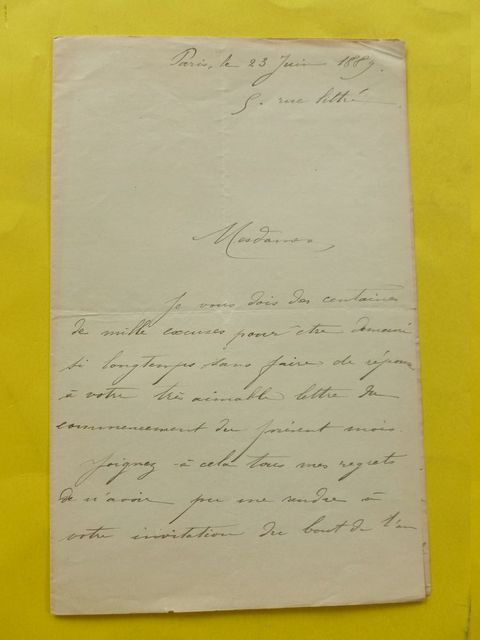 Paris, le 23 Juin 1889.
5. rue Littré
Mesdames,
Je vous dois des centaines
de mille excuses pour être demeuré
si longtemps sans faire de réponse
à votre très aimable lettre du
commencement du présent mois.
Joignez à cela tous mes regrets
de n'avoir pu me rendre à
votre invitation du bout de l'an